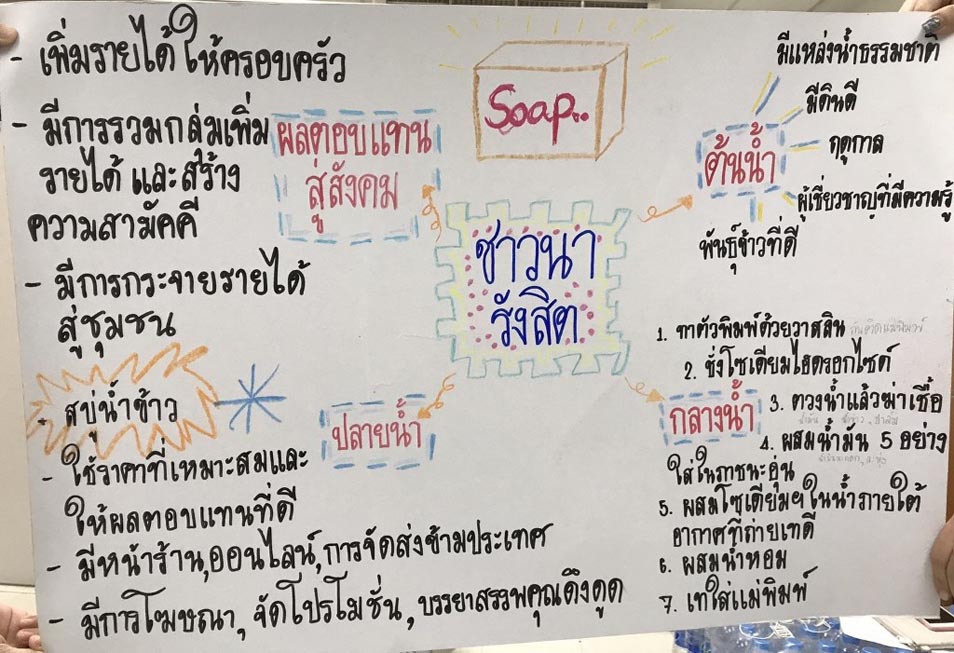 - เพิ่มรายได้ให้ครอบครัว
- มีการรวมกลุ่มเพิ่ม
รายได้ และสร้าง
ความสามัคคี
- มีการกระจายรายได้
สู่ชุมชน
ผลตอบแทน
สู่สังคม
Soap..
ต้นน้ำ
มีแหล่งน้ำธรรมชาติ
มีดินดี
ฤดูกาล
ผู้เชี่ยวชาญที่มีความรู้
พันธุ์ข้าวที่ดี
ชาวนา
รังสิต
ปลายน้ำ
- สบู่น้ำข้าว
- ใช้ราคาที่เหมาะสมและ
ให้ผลตอบแทนที่ดี
- มีหน้าร้าน,ออนไลน์,การจัดส่งข้ามประเทศ
- มีการโฆษณา, จัดโปรโมชั่น, บรรยาสรรพคุณดึงดูด
กลางน้ำ
1. ทาตัวพิมพ์ด้วยวาสลิน กันติดแม่พิมพ์
2. ชั่งโซเดียมไฮดรอกไซด์
3. ตวงน้ำแล้วฆ่าเชื้อ
4. ผสมน้ำมัน 5 อย่าง
ใส่ในภาชนะอุ่น
5. ผสมโซเดียมฯในน้ำภายใต้
อากาศที่ถ่ายเทดี
6. ผสมน้ำหอม
7. เทใส่แม่พิมพ์